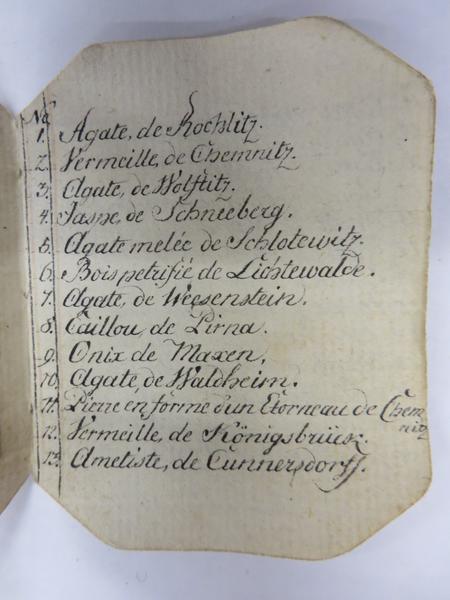 No
1. Agate, de Rochlitz.
2. Vermeille, de Chemnitz.
3. Agate, de Wolftitz.
4. Jaspe, de Schneeberg.
5. Agate melée de Schlotewitz.
6. Bois petrifié de Lichtewalde.
7. Agate, de Weesenstein.
8. Caillou, de Pirna.
9. Onix de Maxen,
10. Agate, de Waldheim.
11. Pierre en forme d'un Etorneau de Chem
nitz
12. Vermeille, de Königsbrück.
13. Ametiste, de Cunnersdorff.